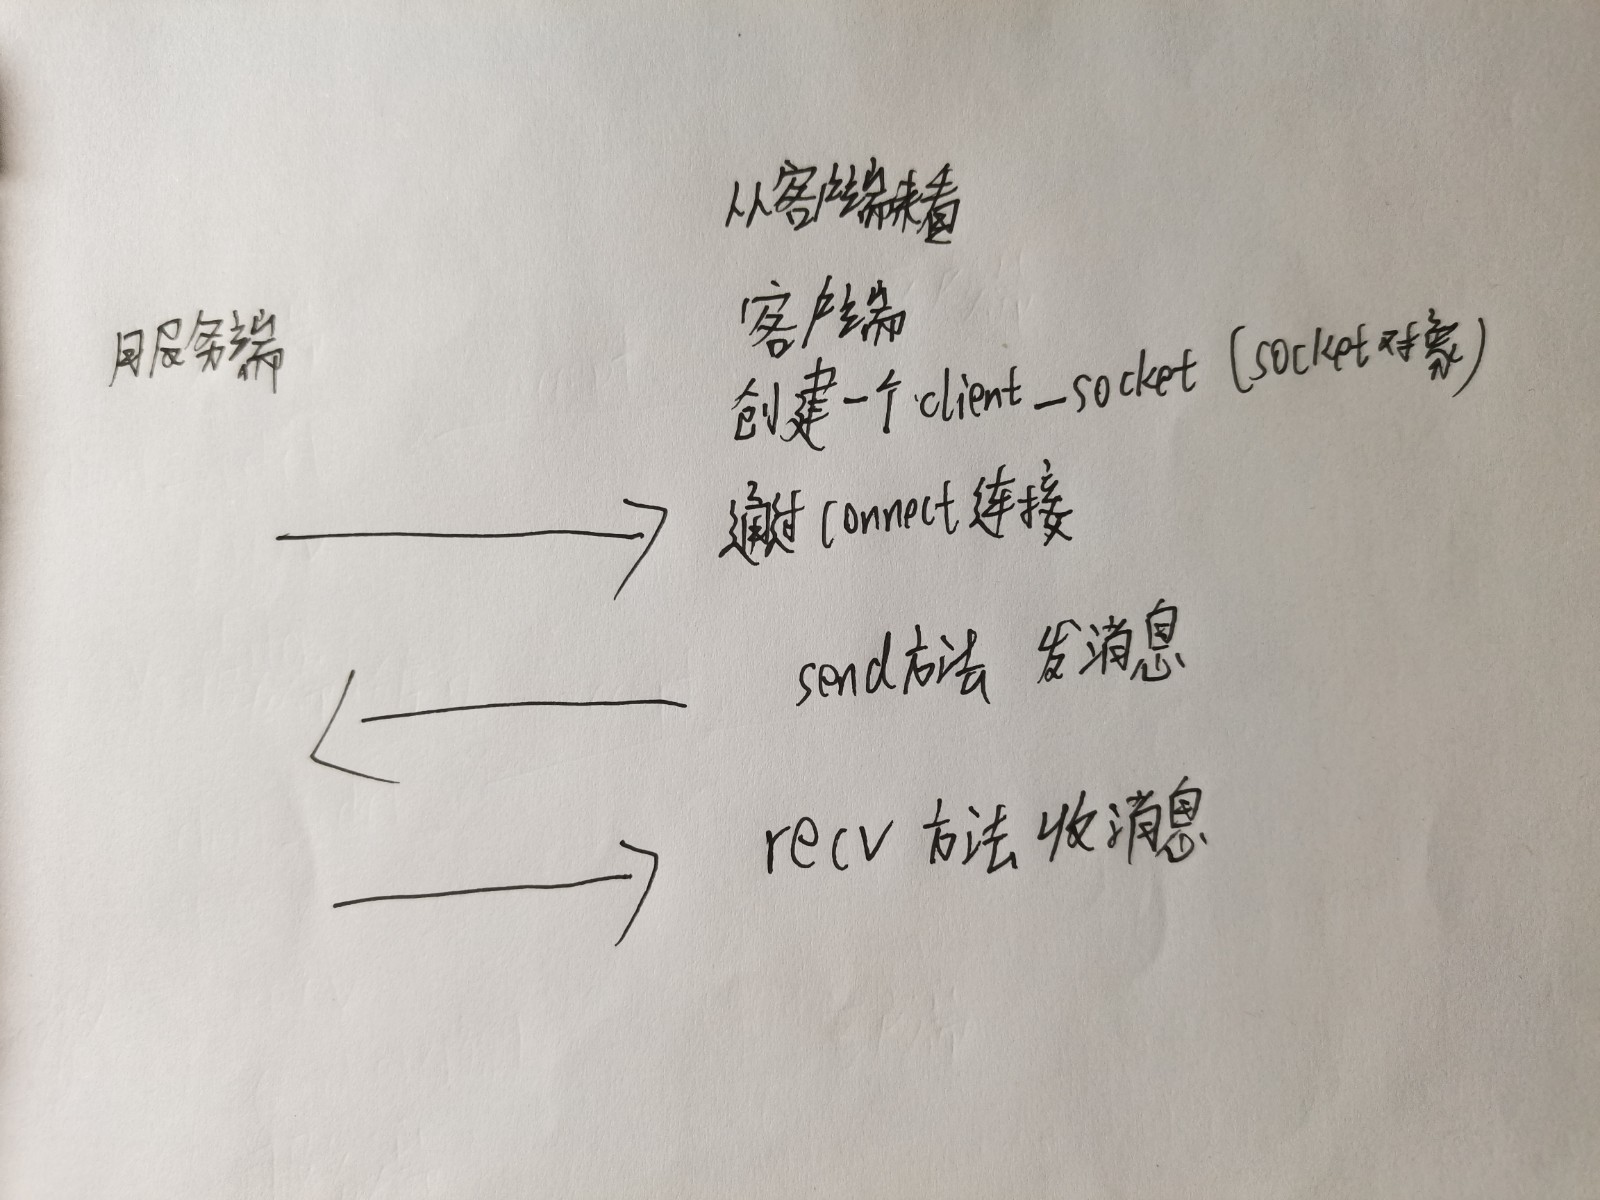 从客户端来看
客户端
服务端
创建一个client_socket (socket对象)
通过connect连接
send方法 发消息
recv方法 收消息